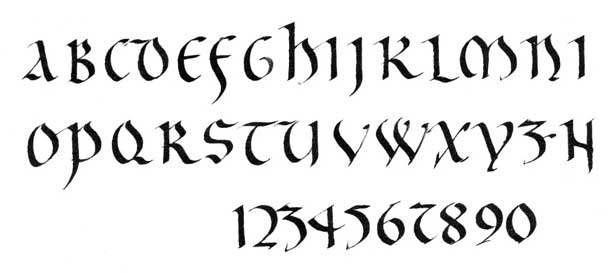 ABCDEFGhIJKLMNI
OPQRSTUVWXYZ-H
1234567890